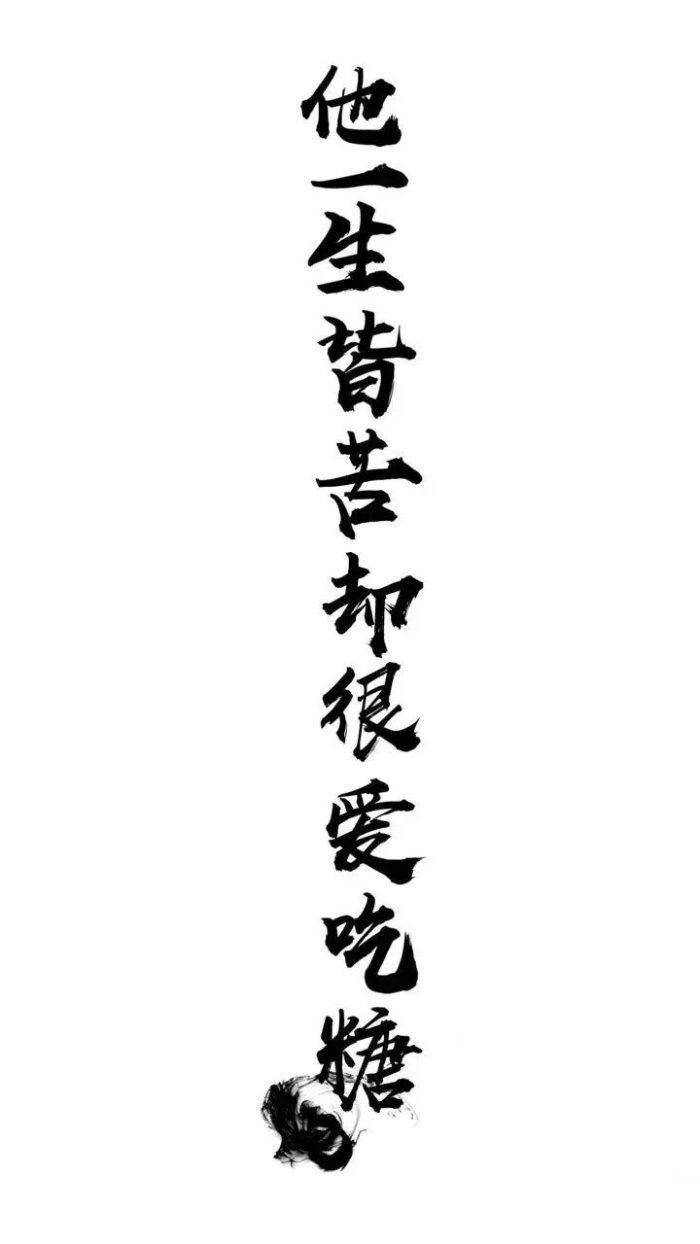 他一生皆苦却很爱吃糖